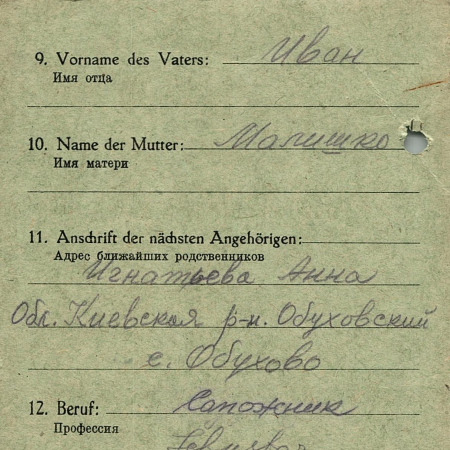 9. Vorname des Vaters: Иван
Имя отца
10. Name der Mutter: Малишко
Имя матери
11. Anschrift der nächsten Angehörigen:
Адрес ближайших родственников
Игнатьева Анна
Обл. Киевская р-н. Обуховский
с. Обухово
12. Beruf: Сапожник
Профессия